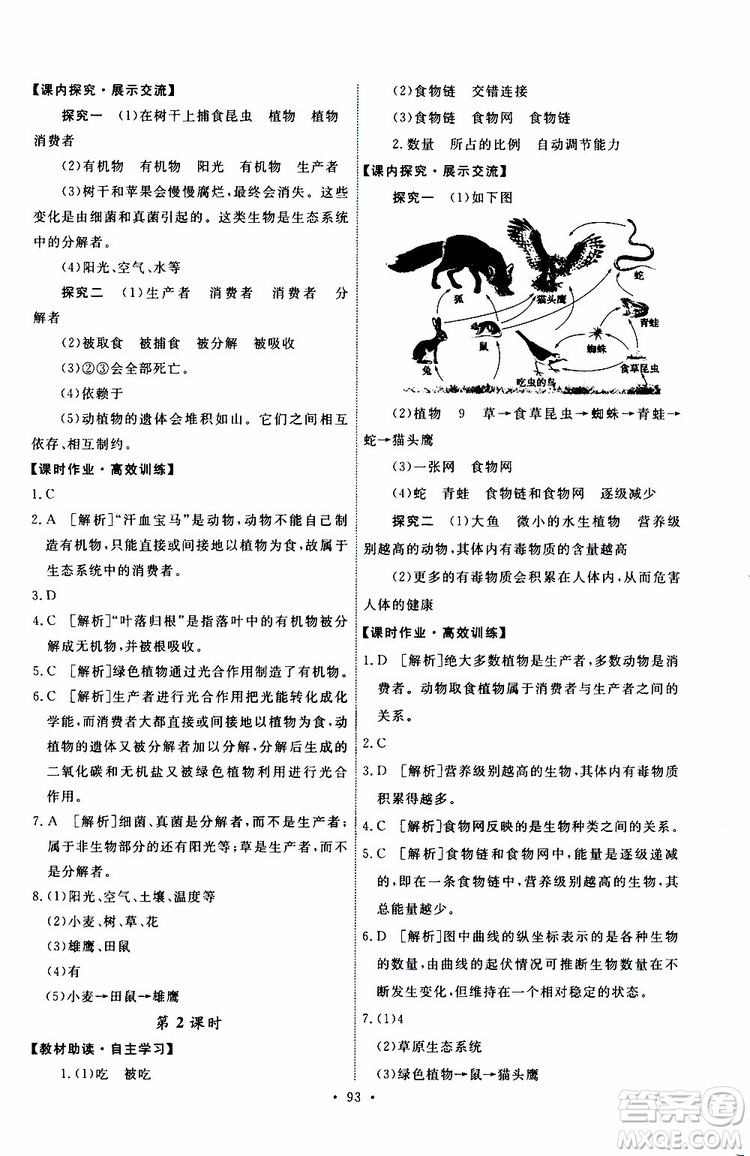 【课内探究·展示交流】
探究一 (1)在树干上捕食昆虫 植物 植物
消费者
(2)有机物 有机物 阳光 有机物 生产者
(3)树干和苹果会慢慢腐烂,最终会消失。这些
变化是由细菌和真菌引起的。这类生物是生态系统
中的分解者。
(4)阳光、空气、水等
探究二 (1)生产者 消费者 消费者 分
解者
(2)被取食 被捕食 被分解 被吸收
(3)②③会全部死亡。
(4)依赖于
(5)动植物的遗体会堆积如山。它们之间相互
依存、相互制约。
【课时作业·高效训练】
1.C
2.A [解析]“汗血宝马”是动物,动物不能自己制
造有机物,只能直接或间接地以植物为食,故属于
生态系统中的消费者。
3.D
4.C [解析]“叶落归根”是指落叶中的有机物被分
解成无机物,并被根吸收。
5.C [解析]绿色植物通过光合作用制造有机物。
6.C [解析]生产者进行光合作用把光能转化成化
学能,而消费者大都直接或间接地以植物为食,动
植物的遗体又被分解者加以分解,分解后产生的
二氧化碳和无机盐又被绿色植物吸收进行光合
作用。
7.A [解析]细菌、真菌是分解者,而不是生产者;
属于非生物部分的还有阳光等;草是生产者,而不
是分解者。
8.(1)阳光、空气、土壤、温度等
(2)小麦、树、草、花
(3)雄鹰、田鼠
(4)有
(5)小麦→田鼠→雄鹰
第2课时
【教材助读·自主学习】
1.(1)吃 被吃
(2)食物链 交错连接
(3)食物链 食物网 食物链
2.数量 所占的比例 自动调节能力
【课内探究·展示交流】
探究一 (1)如下图
狐
猫头鹰
蛇
青蛙
兔
鼠
蜘蛛
吃虫的鸟
食草昆虫
(2)植物 9 草→食草昆虫→蜘蛛→青蛙→
蛇→猫头鹰
(3)一张网 食物网
(4)蛇 青蛙 食物链和食物网 逐级减少
探究二 (1)大鱼 微小的水生植物 营养级
别越高的动物,体内有毒物质的含量越高
(2)更多的有毒物质会积累在人体内,危害
人体的健康
【课时作业·高效训练】
1.D [解析]绝大多数植物是生产者,多数动物是消
费者。动物取食植物属于消费者与生产者之间的
关系。
2.C
3.D [解析]营养级别越高的生物,体内有毒物质
积累得越多。
4.C [解析]食物网反映的是生物种类之间的关系。
5.C [解析]食物链和食物网中,能量是逐级递减
的,即在一条食物链中,营养级别越高的生物,其
总能量越少。
6.D [解析]图中曲线的纵坐标表示的是各种生物
的数量,由曲线的起伏情况可推断生物数量在不
断发生变化,但又维持在一个相对稳定的状态。
7.(1)4
(2)草原生态系统
(3)绿色植物→鼠→猫头鹰
·93·
答案圈
MXQE.COM